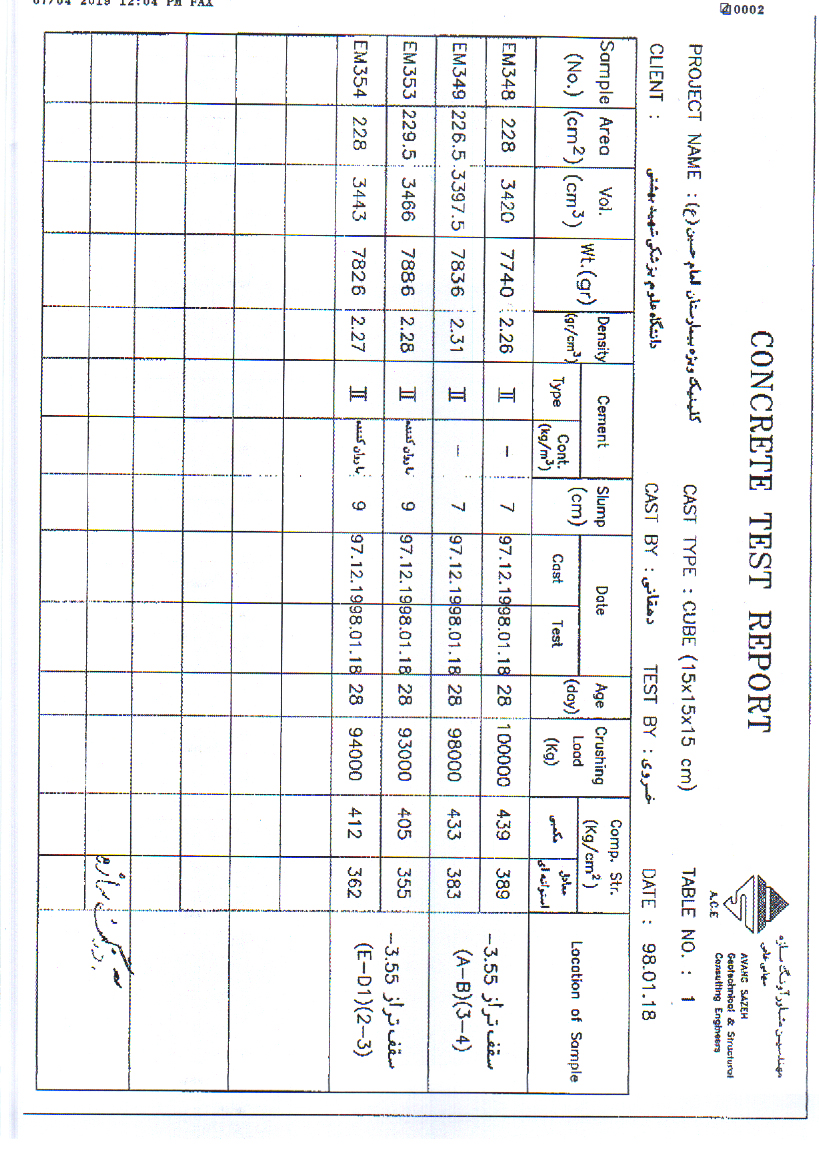 07/04 2019 12:04 PM FAX
0002
CONCRETE TEST REPORT
مهندسین مشاور آونگ سازه
سهامی خاص
AVANG SAZEH
Geotechnical & Structural
Consulting Engineers
A.C.E
PROJECT NAME : کلینیک ویژه بیمارستان امام حسین (ع) CAST TYPE : CUBE (15x15x15 cm) TABLE NO. : 1
CLIENT : دانشگاه علوم پزشکی شهید بهشتی CAST BY : دهقانی TEST BY : خسروی DATE : 98.01.18
Sample (No.) Area (cm2) Vol. (cm3) Wt.(gr) Density (gr/cm3) Cement Type Cont. (kg/m3) Slump (cm) Date Cast Test Age (day) Crushing Load (Kg) Comp. Str. (Kg/cm2) مکعبی معادل استوانه ای Location of Sample
EM348 228 3420 7740 2.26 II – 7 97.12.19 98.01.18 28 100000 439 389
EM349 226.5 3397.5 7836 2.31 II – 7 97.12.19 98.01.18 28 98000 433 383
سقف تراز 3.55–
(A–B)(3–4)
EM353 229.5 3466 7886 2.28 II با روان کننده 9 97.12.19 98.01.18 28 93000 405 355
EM354 228 3443 7826 2.27 II با روان کننده 9 97.12.19 98.01.18 28 94000 412 362
سقف تراز 3.55–
(E–D1)(2–3)